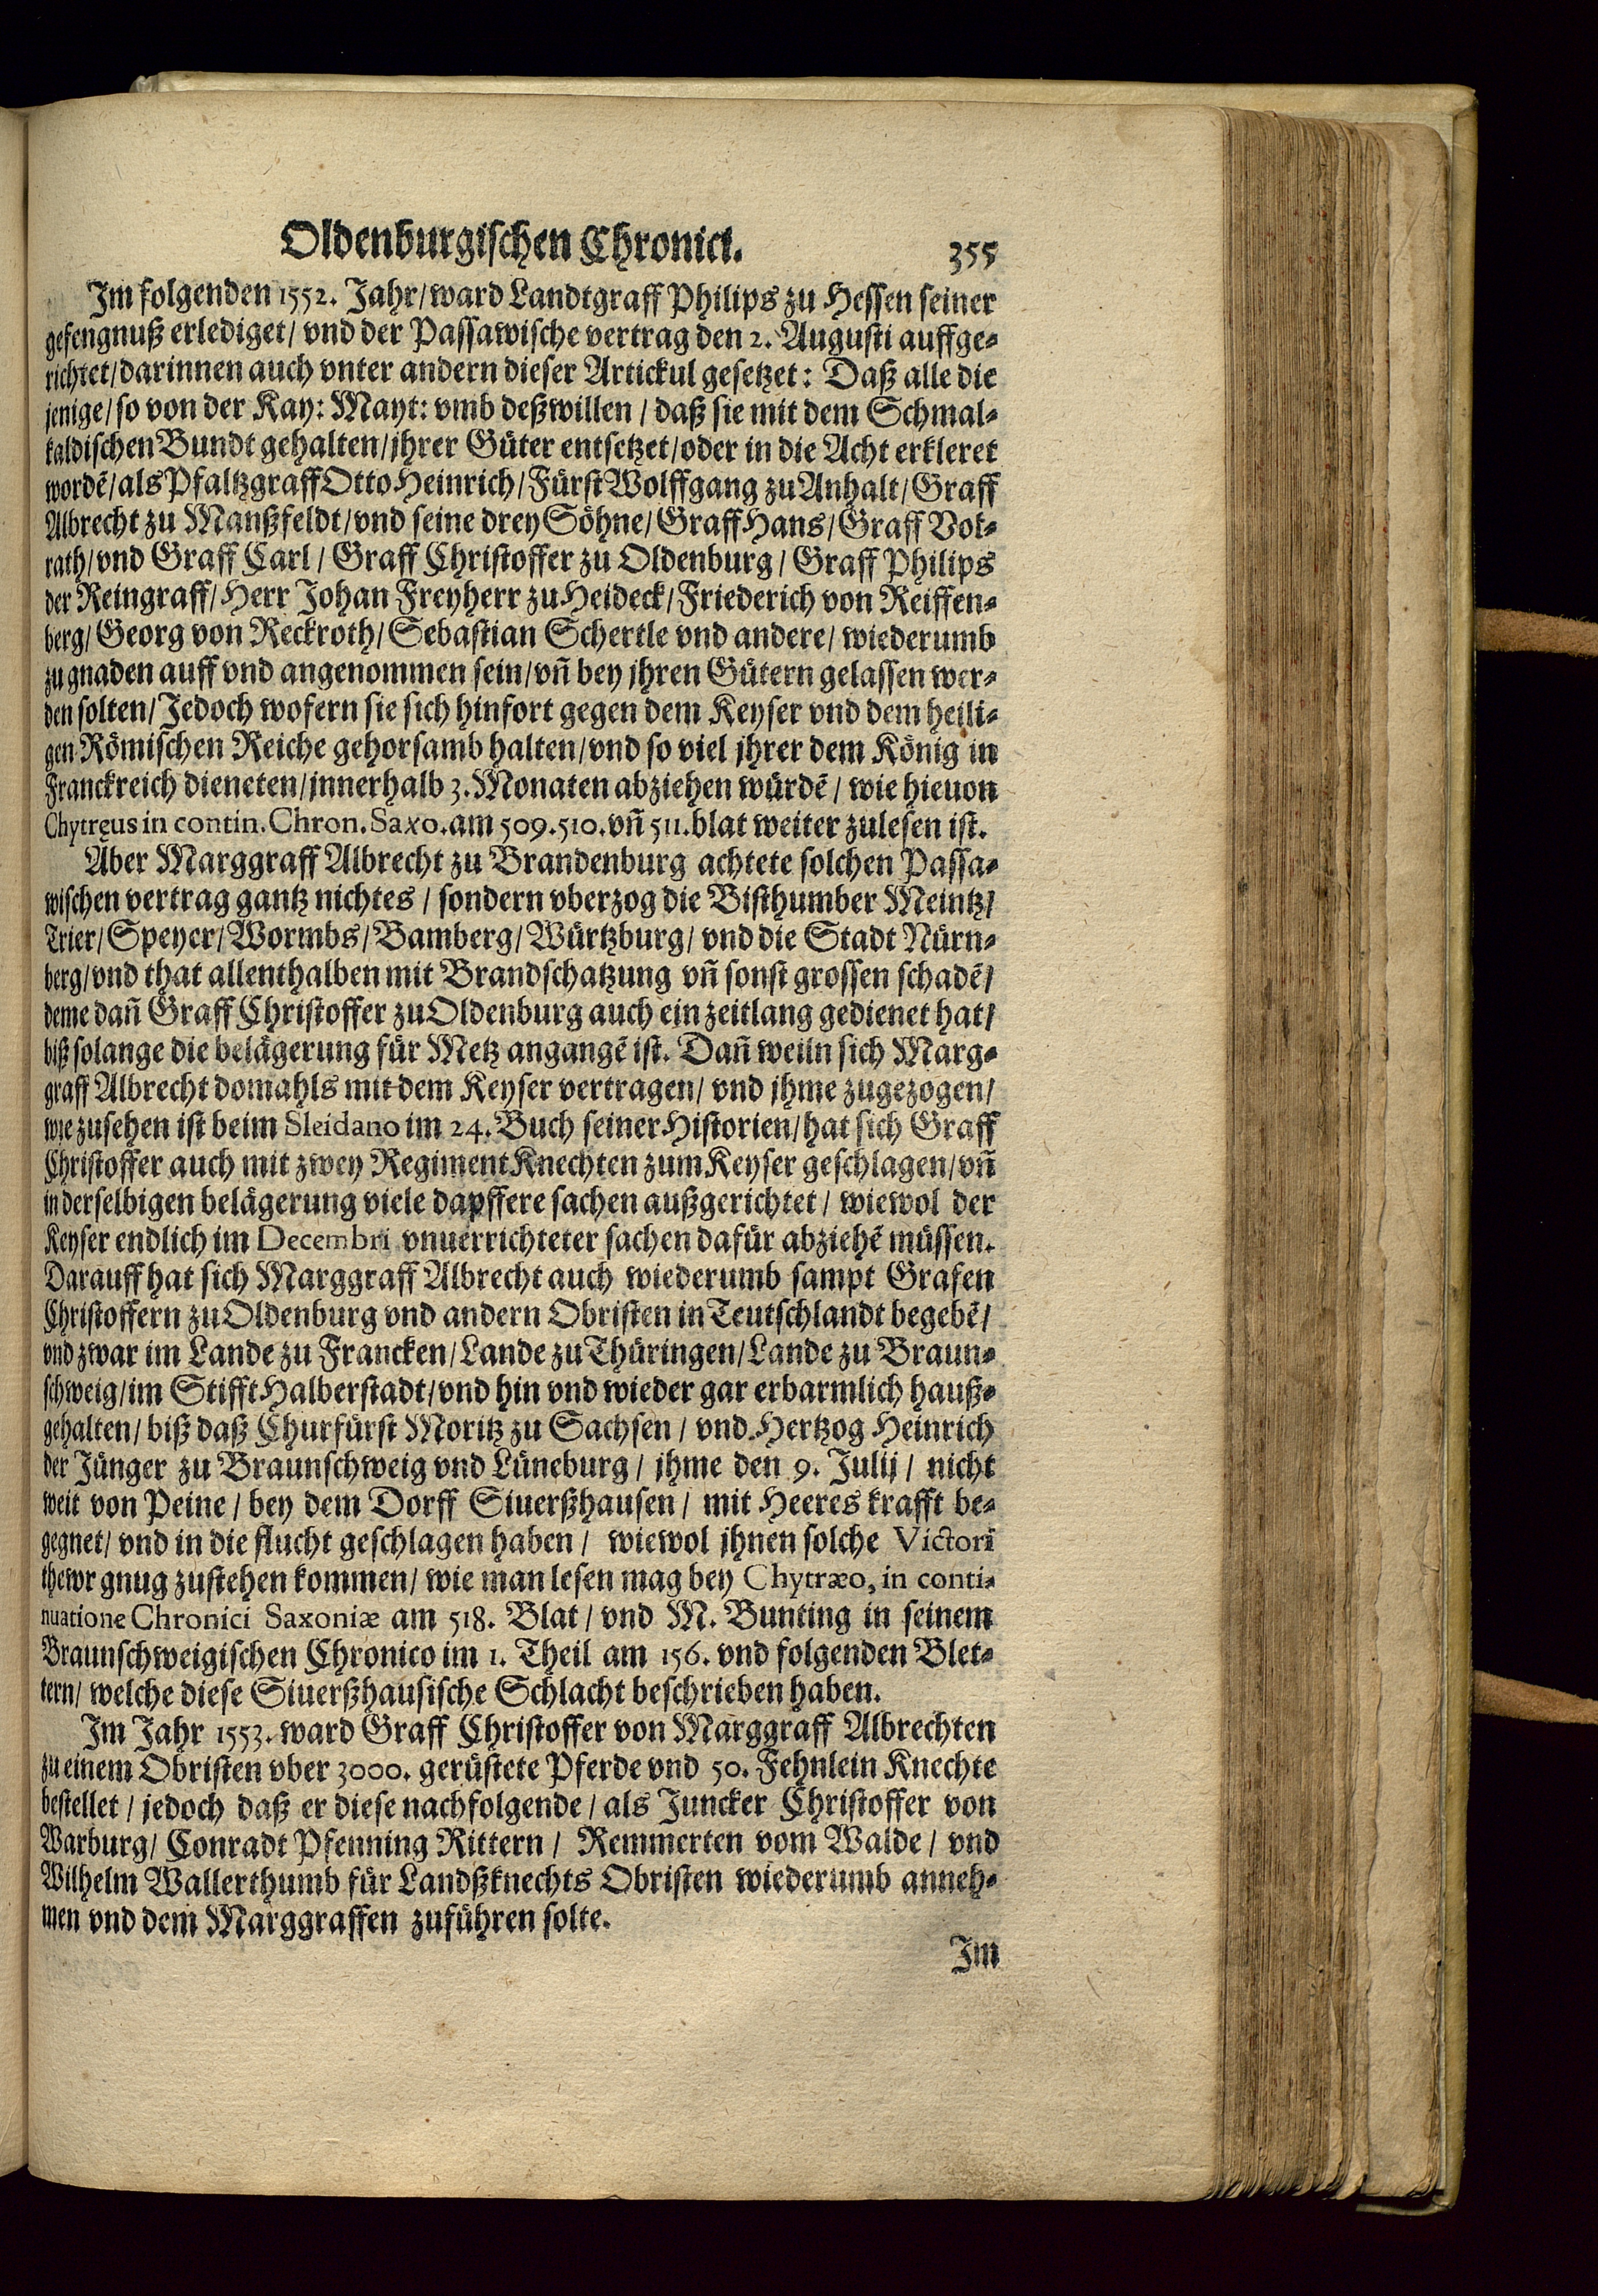 Oldenburgischen Chronici. 355
Im folgenden 1552. Jahr/ward Landtgraff Philips zu Hessen seiner
gefengnuß erlediget/ vnd der Passawische vertrag den 2. Augusti auffge-
richtet/darinnen auch vnter andern dieser Artickul gesetzet: Daß alle die
jenige/so von der Kay: Mayt: vmb deßwillen/ daß sie mit dem Schmal-
kaldischen Bundt gehalten/jhrer Güter entsetzet/oder in die Acht erkleret
wordē/als Pfaltzgraff Otto Heinrich/Fürst Wolffgang zu Anhalt/Graff
Albrecht zu Manßfeldt/vnd seine drey Söhne/Graff Hans/Graff Vok-
rath/vnd Graff Carl/ Graff Christoffer zu Oldenburg/Graff Philips
der Reingraff/Herr Johan Freyherr zu Heideck/Friederich von Reiffen-
berg/Georg von Reckroth/Sebastian Schertle vnd andere/ wiederumb
zu gnaden auff vnd angenommen sein/vñ bey jhren Gütern gelassen wer-
den solten/Jedoch wofern sie sich hinfort gegen dem Keyser vnd dem heili-
gen Römischen Reiche gehorsamb halten/vnd so viel jhrer dem König in
Franckreich dieneten/jnnerhalb 3. Monaten abziehen würdē/ wie hieuon
Chytręus in contin. Chron. Saxo. am 509. 510. vñ 511. blat weiter zulesen ist.
Aber Marggraff Albrecht zu Brandenburg achtete solchen Passa-
wischen vertrag gantz nichtes/ sondern vberzog die Bisthumber Meintz/
Trier/Speyer/Wormbs/Bamberg/Würtzburg/ vnd die Stadt Nürn-
berg/vnd that allenthalben mit Brandschatzung vñ sonst grossen schadē/
deme dañ Graff Christoffer zu Oldenburg auch ein zeitlang gedienet hat/
biß solange die belägerung für Metz angangē ist. Dañ weiln sich Marg-
graff Albrecht domahls mit dem Keyser vertragen/ vnd jhme zugezogen/
wie zusehen ist beim Sleidano im 24. Buch seiner Historien/hat sich Graff
Christoffer auch mit zwey Regiment Knechten zum Keyser geschlagen/vñ
in derselbigen belägerung viele dapffere sachen außgerichtet/ wiewol der
Keyser endlich im Decembri vnuerrichteter sachen dafür abziehē müssen.
Darauff hat sich Marggraff Albrecht auch wiederumb sampt Grafen
Christoffern zu Oldenburg vnd andern Obristen in Teutschlandt begebē/
vnd zwar im Lande zu Francken/Lande zu Thüringen/Lande zu Braun-
schweig/im Stifft Halberstadt/vnd hin vnd wieder gar erbarmlich hauß-
gehalten/ biß daß Churfürst Moritz zu Sachsen/ vnd Hertzog Heinrich
der Jünger zu Braunschweig vnd Lüneburg/ jhme den 9. Julij/ nicht
weit von Peine/ bey dem Dorff Siuerßhausen/ mit Heeres krafft be-
gegnet/ vnd in die flucht geschlagen haben/ wiewol jhnen solche Victori
thewr gnug zustehen kommen/ wie man lesen mag bey Chytræo, in conti-
nuatione Chronici Saxoniæ am 518. Blat/ vnd M. Bunting in seinem
Braunschweigischen Chronico im 1. Theil am 156. vnd folgenden Blet-
tern/ welche diese Siuerßhausische Schlacht beschrieben haben.
Im Jahr 1553. ward Graff Christoffer von Marggraff Albrechten
zu einem Obristen vber 3000. gerüstete Pferde vnd 50. Fehnlein Knechte
bestellet/ jedoch daß er diese nachfolgende/ als Juncker Christoffer von
Warburg/ Conradt Pfenning Rittern/ Remmerten vom Walde/ vnd
Wilhelm Wallerthumb für Landßknechts Obristen wiederumb anneh-
men vnd dem Marggraffen zuführen solte.
Im